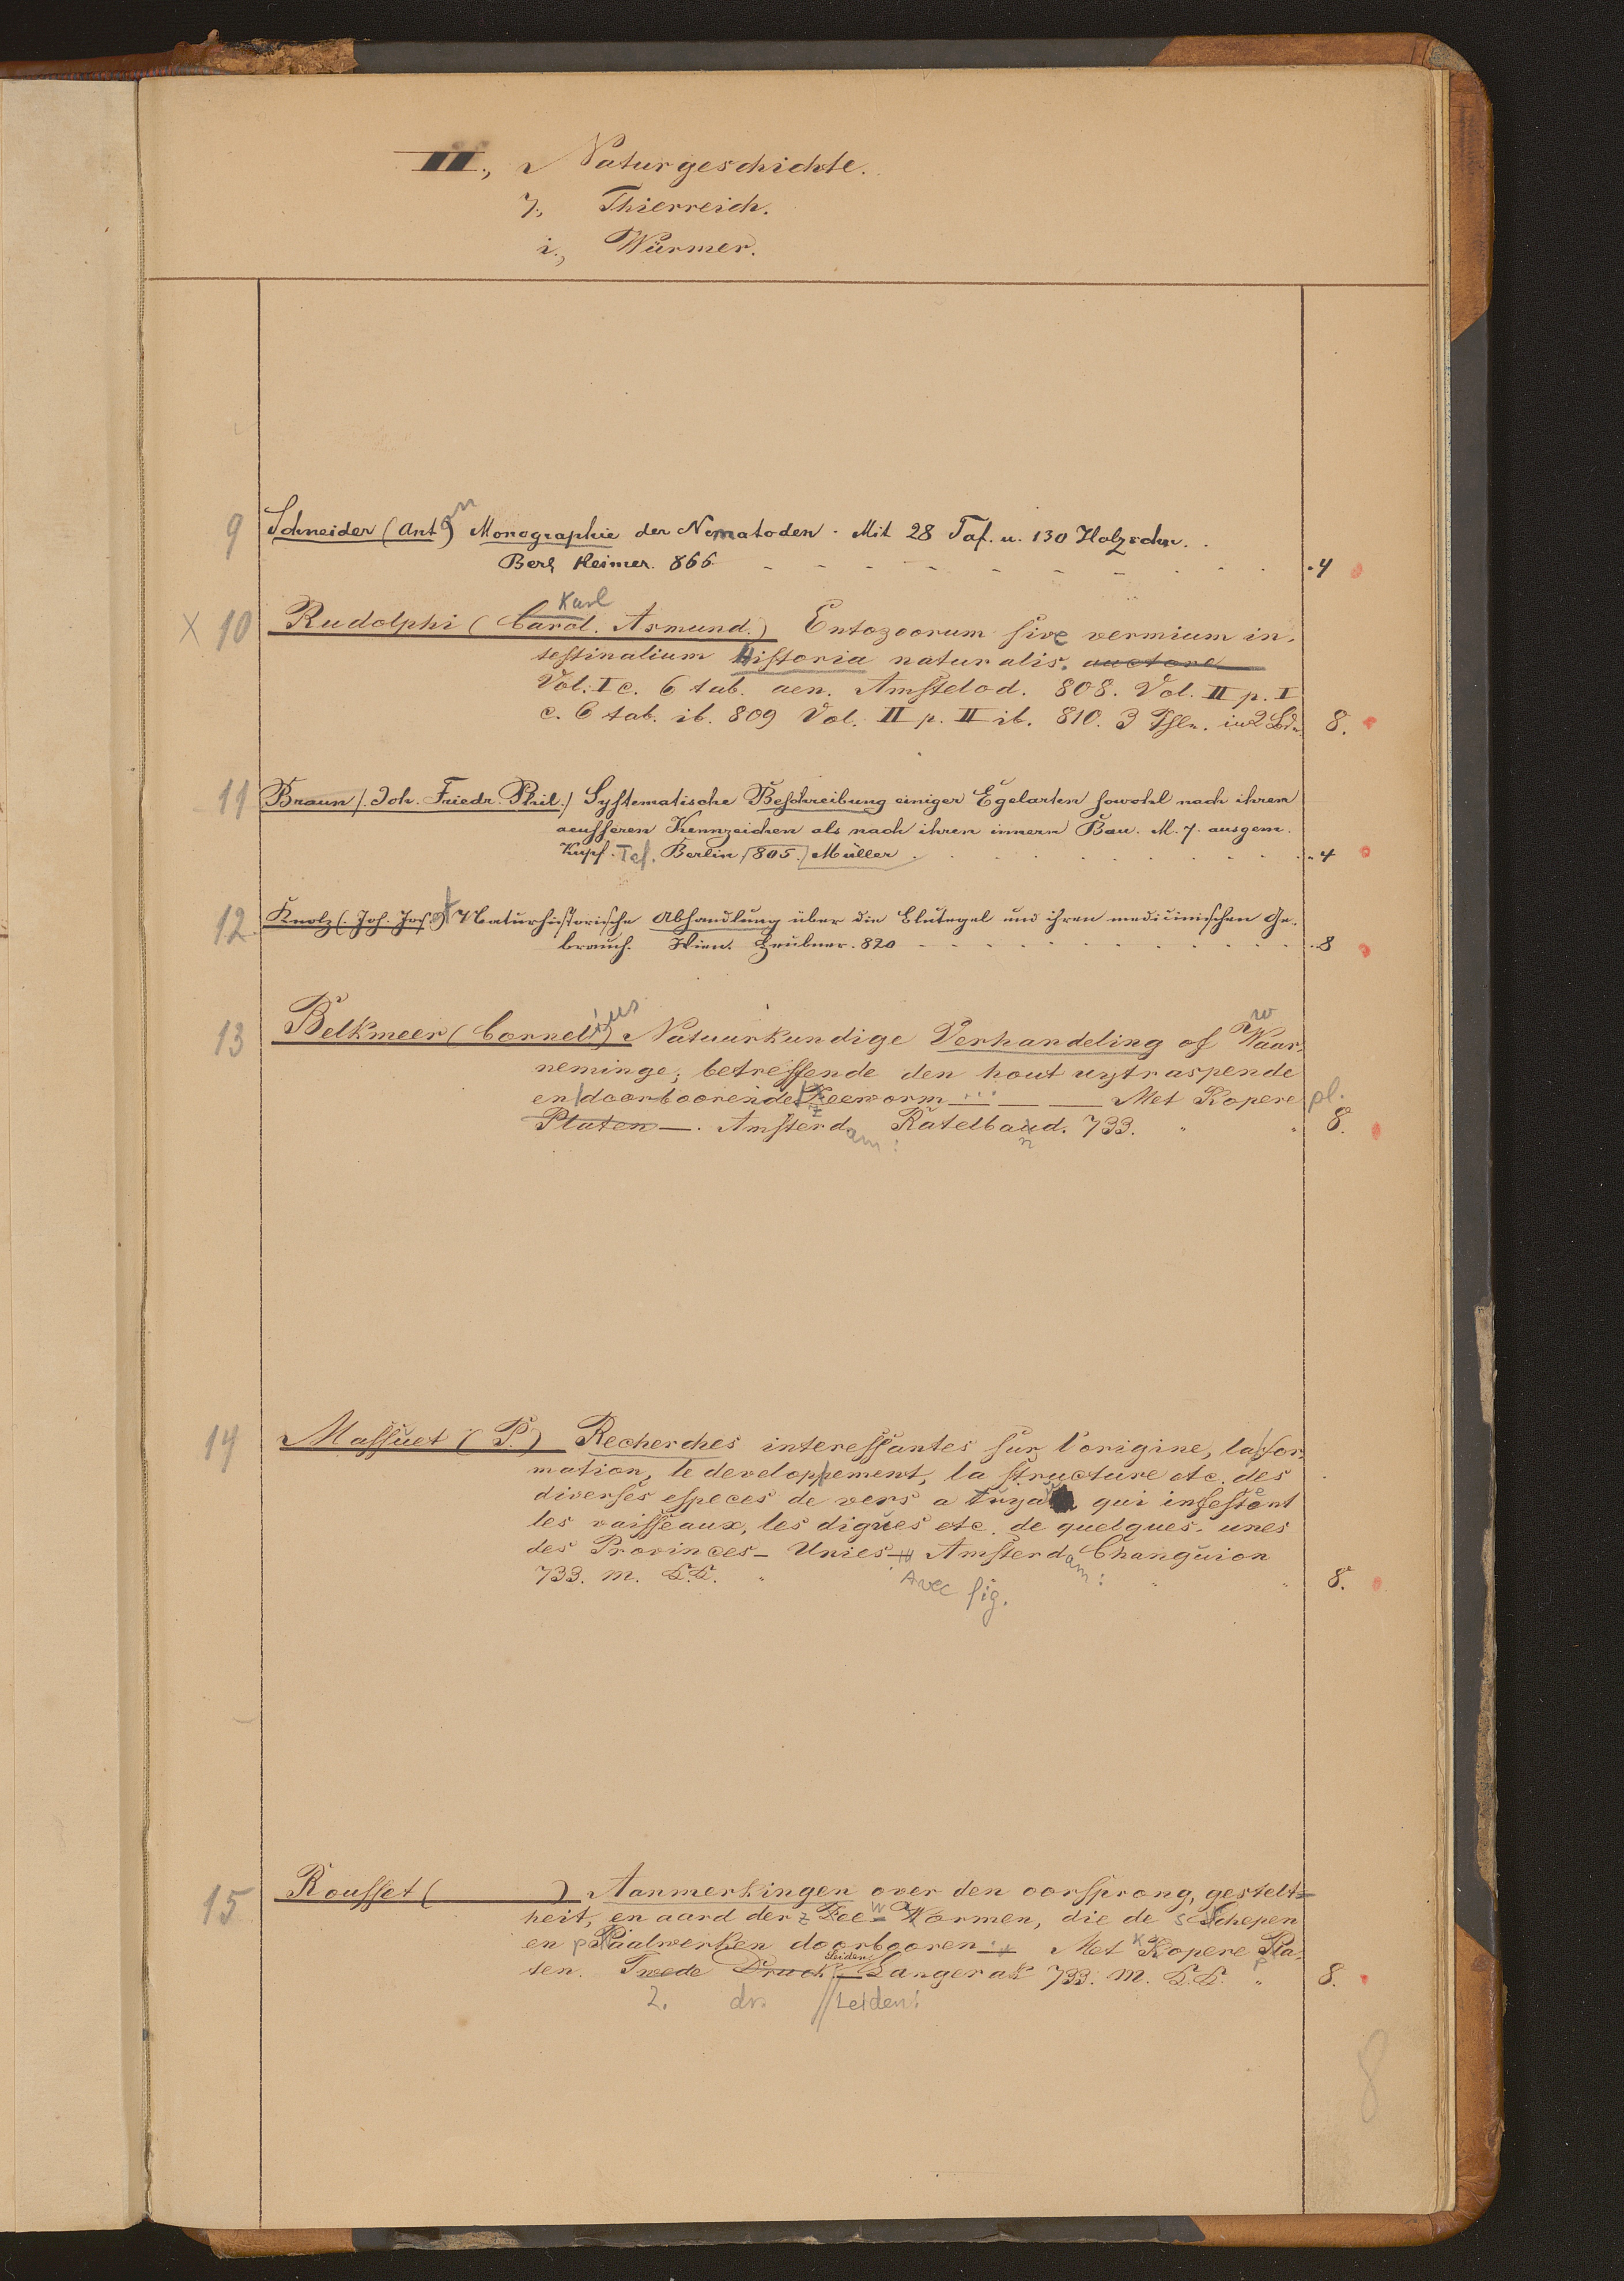 III., Naturgeschichte.
7., Thierreich.
i., Würmer.
9 Schneider (Anton) Monographie der Nematoden. Mit 28 Taf. u. 130 Holzschn.
Berl. Reimer. 866. 4
Karl
X 10 Rudolphi (Carol. Asmund.) Entozoorum sive vermium in-
testinalium Historia naturalis. auctore
Vol. I c. 6 tab. aen. Amstelod. 808. Vol. II p. I
c. 6 tab. ib. 809 Vol. II p. II ib. 810. 3 Thle. in 2 Bdn. 8.
11 Braun /. Joh. Friedr. Phil./ Systematische Beschreibung einiger Egelarten sowohl nach ihrem
aeusseren Kennzeichen als nach ihren innern Bau. M. 7. ausgem.
Kupf. Taf. Berlin 805. Müller. 4
12. Knolz (. Joh. Jos.) Naturhistorische Abhandlung über die Blutegel und ihren medicinischen Ge-
brauch. Wien. Zeubner. 820 8
13 Belkmeer (Cornelius) Natuurkundige Verhandeling of Waar- w
neminge, betreffende den hout uytraspende
en doorboorende Zeeworm ... Met Kopere pl.
Platen —. Amsterdam: Ratelband. 733. 8.
14 Massuet (P.) Recherches interessantes sur l'origine, la for-
mation, le developpement, la structure etc. des
diverses especes de vers a tuyau qui infestent
les vaisseaux, les digues etc. de quelques-unes
des Provinces-Unies Amsterdam: Changuion
733. m. K.K. Avec fig. 8.
15 Rousset ( ) Aanmerkingen over den oorsprong, gestelt-
heit, en aard der z Zee-Wormen, die de Schepen
en p Paalwerken doorbooren. Met K Kopere Pla-
Leiden:
ten. Twede Druck — Langerak 733. m. K.K. 8.
2. dr. // Leiden:
8